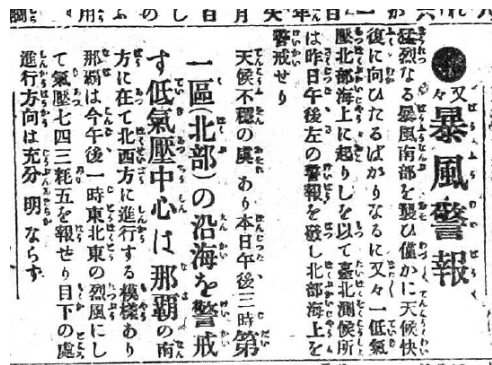 又々暴風警報
猛烈なる暴風南部を襲ひ僅かに天候快
復に向ひたるばかりなるに又々一低氣
壓北部海上に起りしを以て臺北測候所
は昨日午後左の警報を發し北部海上を
警戒せり
天候不穩の虞あり本日午後三時第
一區(北部)の沿海を警戒
す低氣壓中心は那覇の南
方に在て北西方に進行する模樣あり
那覇は今午後一時東北東の烈風にし
て氣壓七四三粍五を報せり目下の處
進行方向は充分明ならす